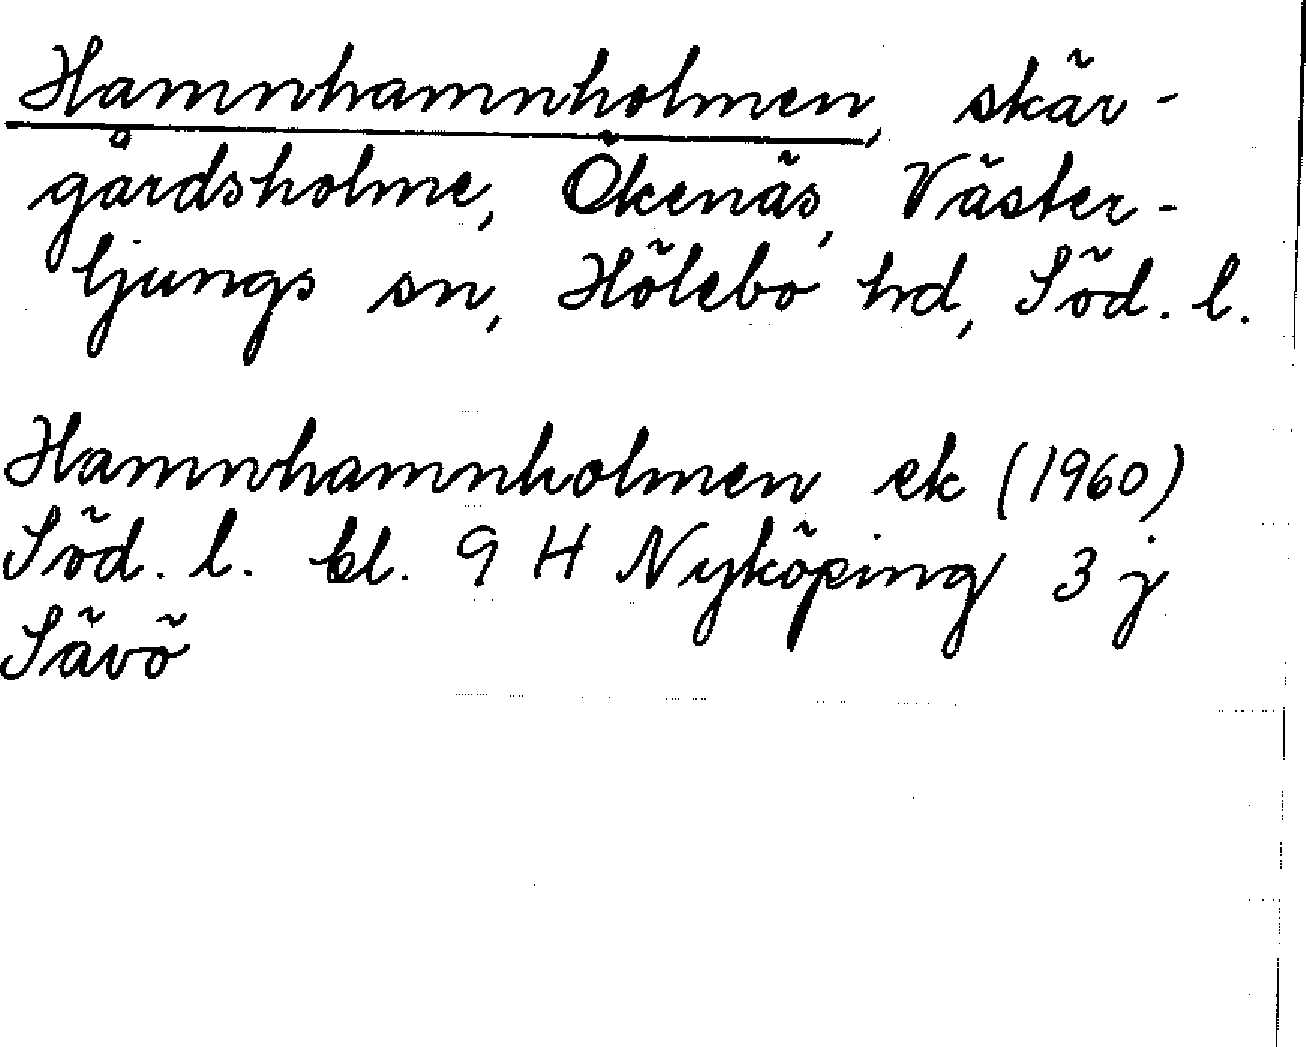 Hamnhamnholmen, skär-
gårdsholme, Ökenäs, Väster-
ljungs sn, Hölebo hd, Söd. l.
Hamnhamnholmen ek (1960)
Söd. l. bl. 9 H Nyköping 3 j
Sävö